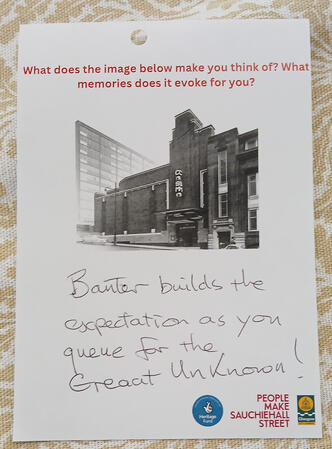 What does the image below make you think of? What
memories does it evoke for you?
Banter builds the
expectation as you
queue for the
Greaat UnKnown!
Heritage
Fund
PEOPLE
MAKE
SAUCHIEHALL
STREET
Glasgow